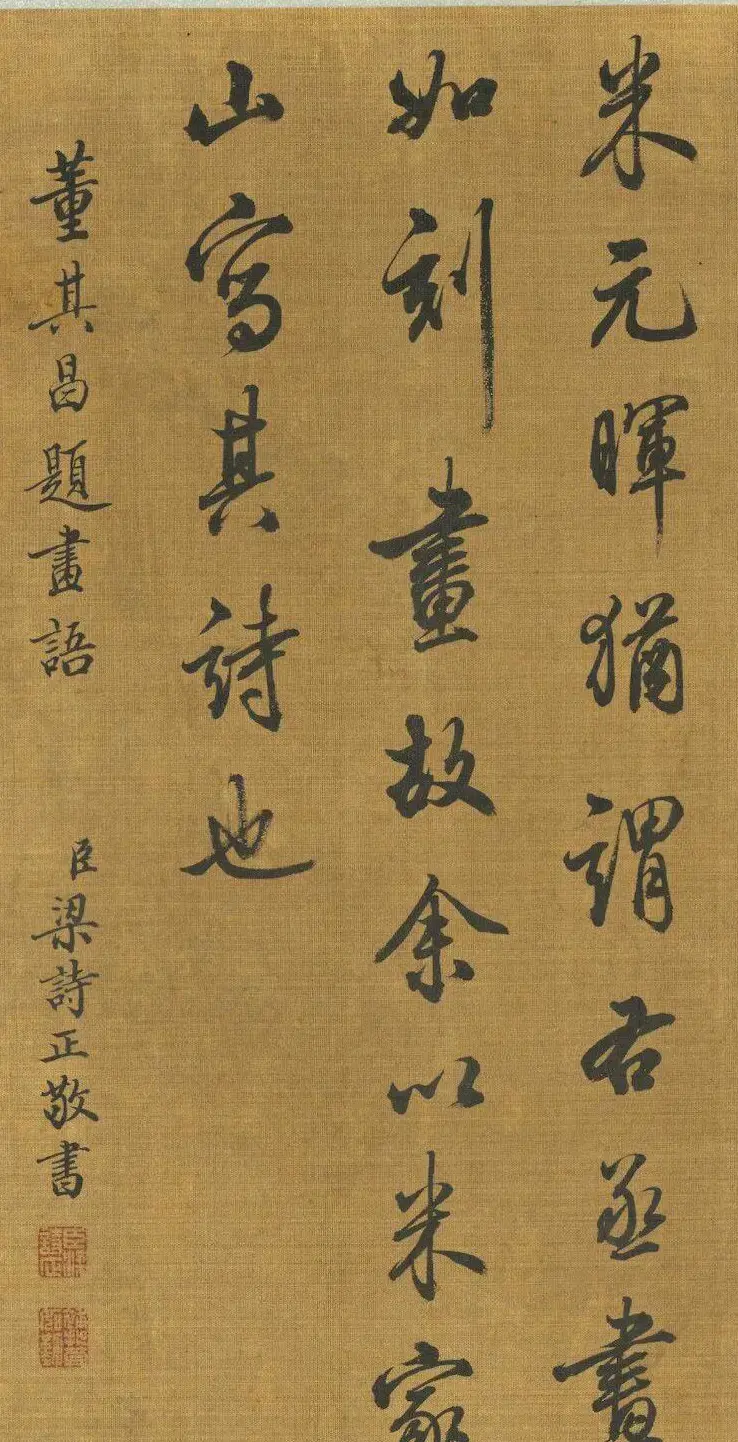 米元暉猶謂右丞畫
如刻畫故余以米家
山寫其詩也
董其昌題畫語
臣梁詩正敬書